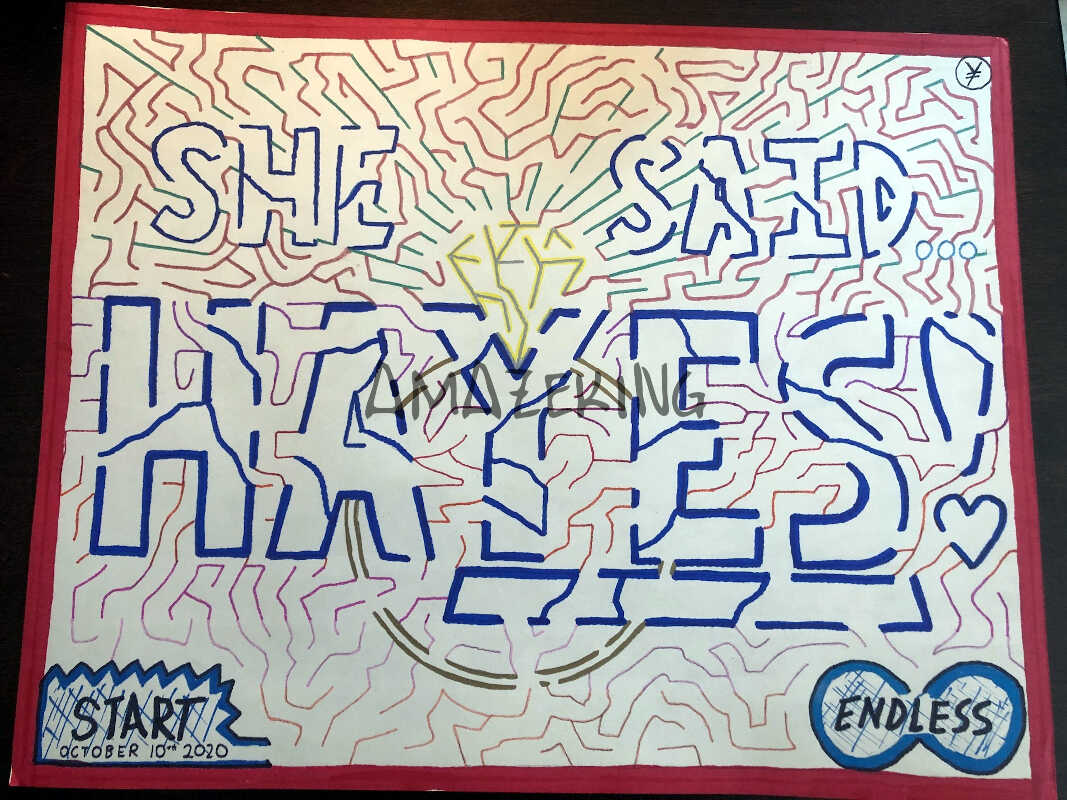 ¥
SHE SAID...
YES!
AMAZEKING
START
OCTOBER 10TH 2020
ENDLESS